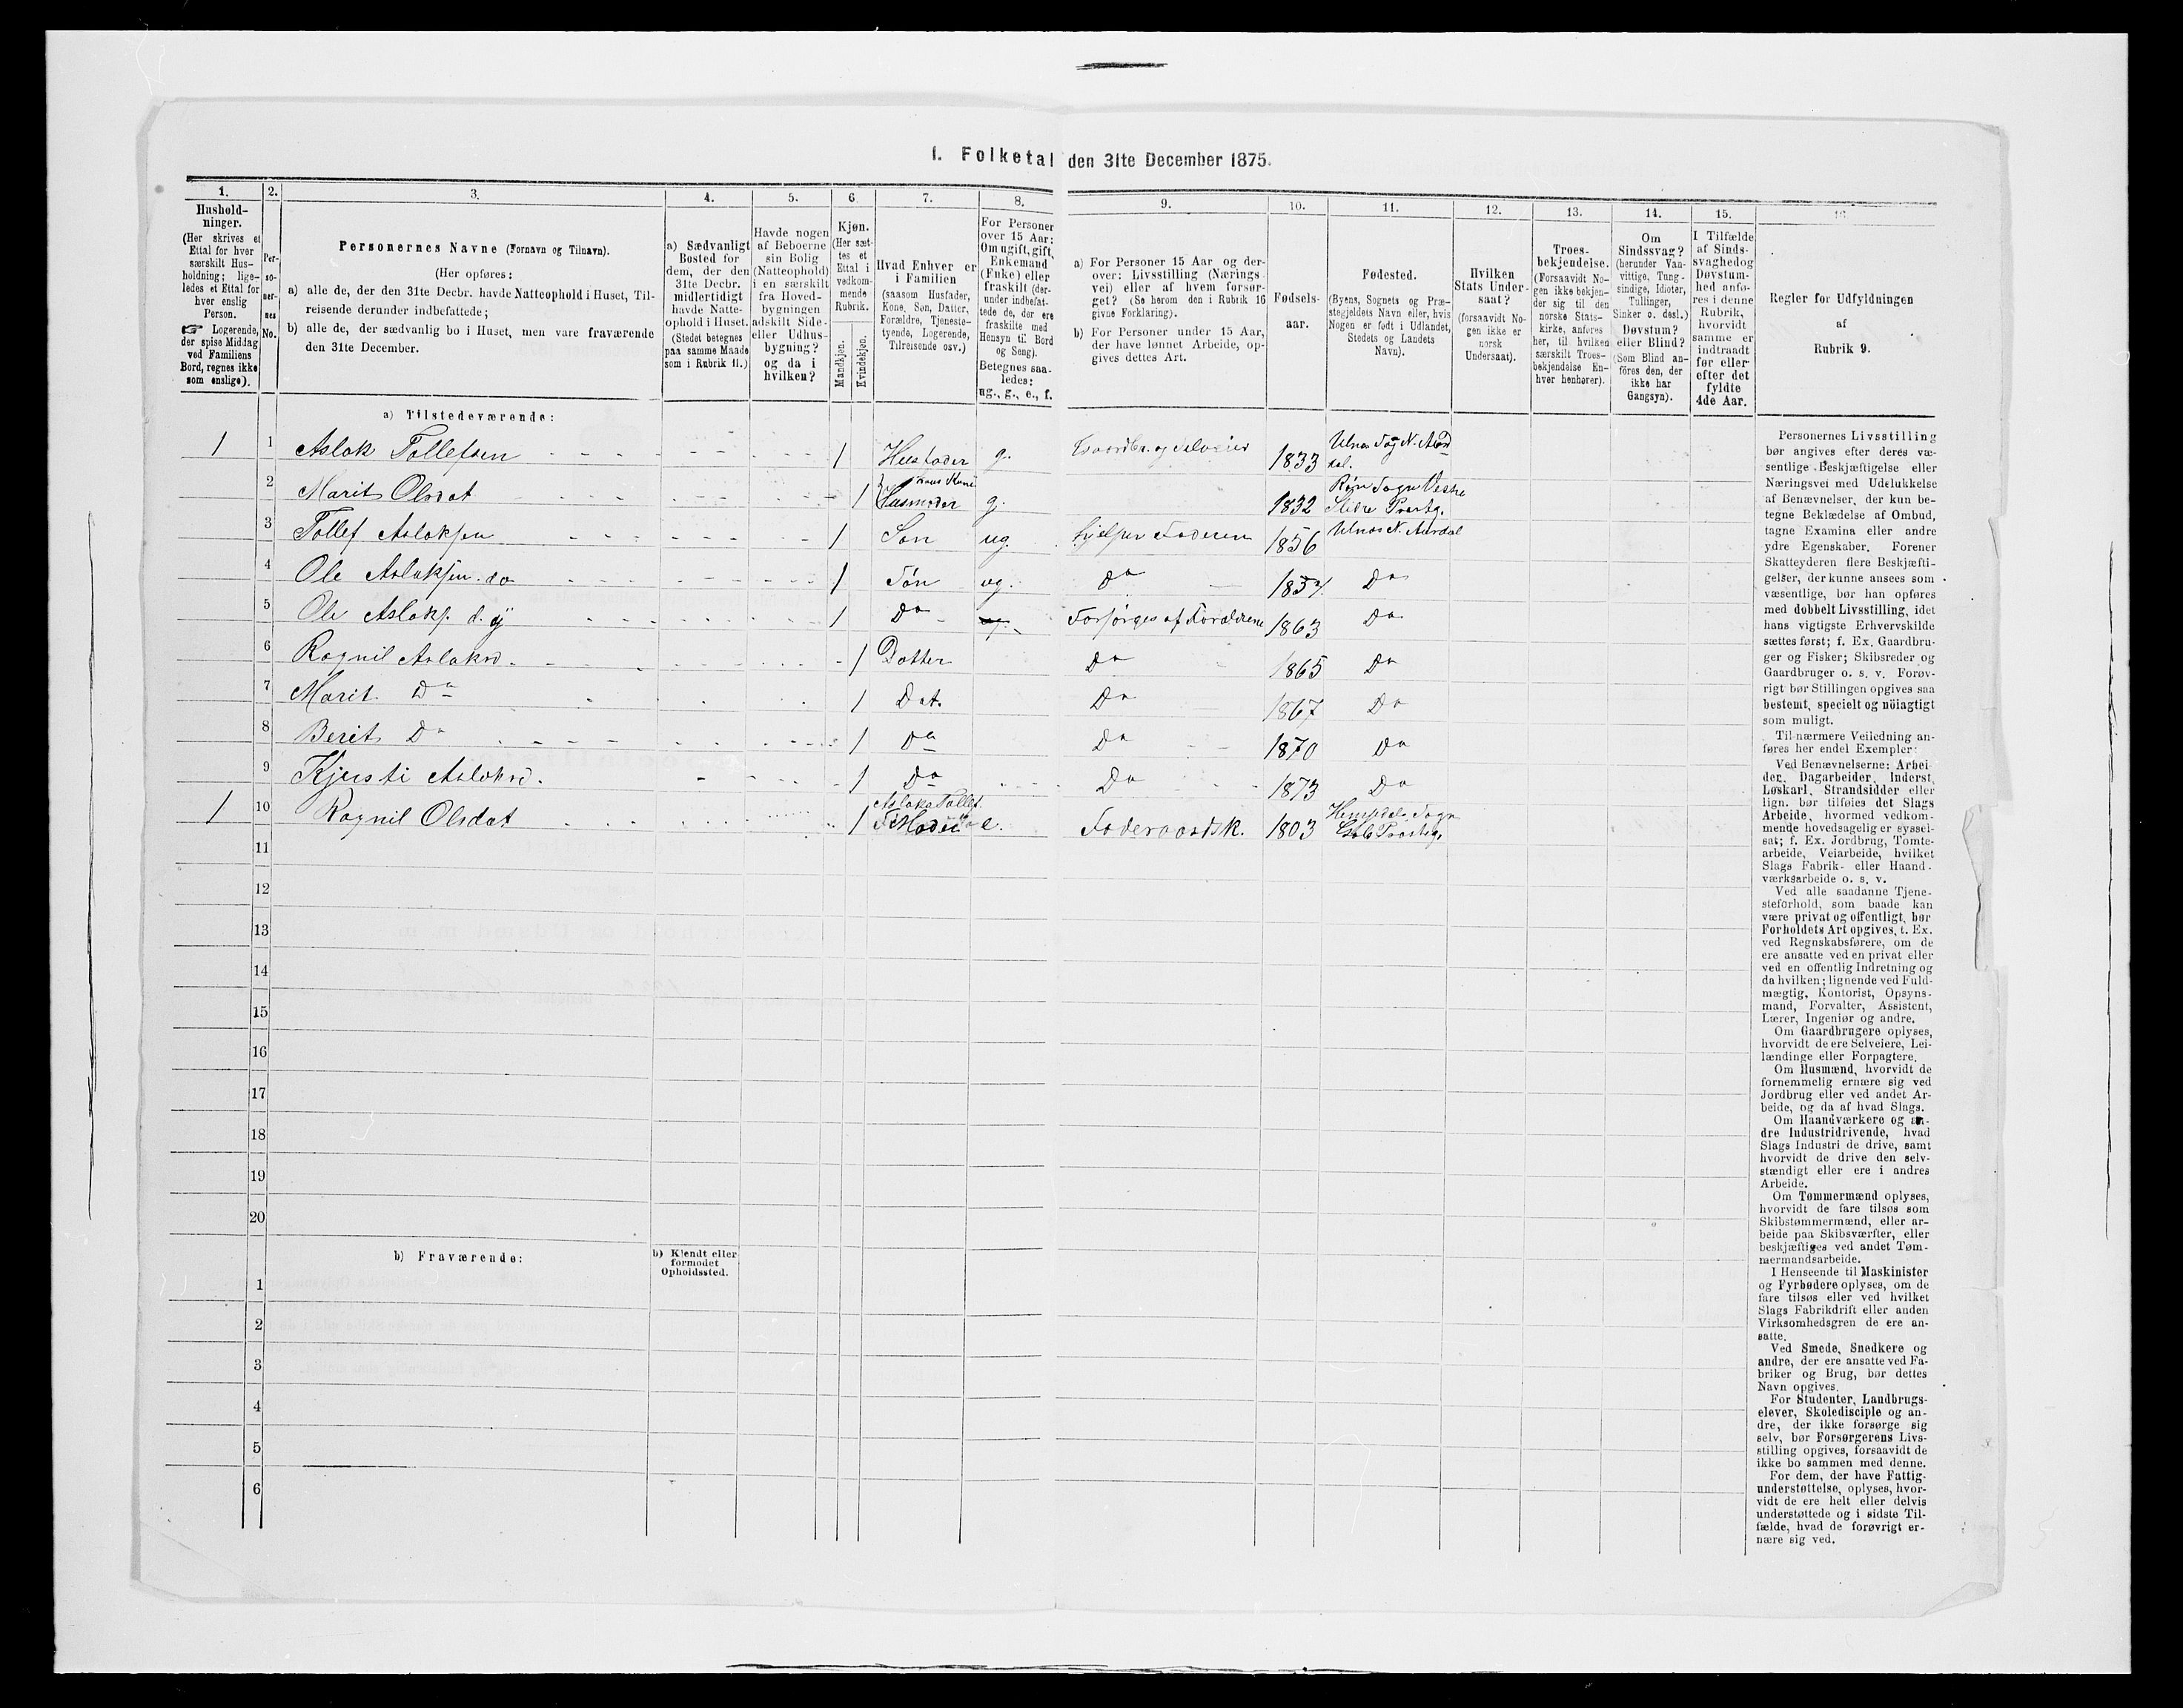 I. Folketal den 31te December 1875.
1. 2. 3. 4. 5. 6. 7. 8. 9. 10. 11. 12. 13. 14. 15. 16.
Hushold-
ninger.
(Her skrives et
Ettal for hver
særskilt Hus-
holdning; lige-
ledes et Ettal for
hver enslig
Person.
☞ Logerende,
der spise Middag
ved Familiens
Bord, regnes ikke
som enslige).
Per-
so-
ner-
nes
No.
Personernes Navne (Fornavn og Tilnavn).
(Her opføres:
a) alle de, der den 31te Decbr. havde Natteophold i Huset, Til-
reisende derunder indbefattede;
b) alle de, der sædvanlig bo i Huset, men vare fraværende
den 31te December.
a) Sædvanligt
Bosted for
dem, der den
31te Decbr.
midlertidigt
havde Natte-
ophold i Huset.
(Stedet betegnes
paa samme Maade
som i Rubrik 11.)
Havde nogen
af Beboerne
sin Bolig
(Natteophold)
i en særskilt
fra Hoved-
bygningen
adskilt Side-
eller Udhus-
bygning?
og da i
hvilken?
Kjøn.
(Her sæt-
tes et
Ettal i
vedkom-
mende
Rubrik.
Mandkjøn.
Kvindekjøn.
Hvad Enhver er
i Familien
(saasom Husfader,
Kone, Søn, Datter,
Forældre, Tjeneste-
tyende, Logerende,
Tilreisende osv.)
For Personer
over 15 Aar;
Om ugift, gift,
Enkemand
(Enke) eller
fraskilt (der-
under indbefat-
tede de, der ere
fraskilte med
Hensyn til Bord
og Seng).
Betegnes saa-
ledes:
ug., g., e., f.
a) For Personer 15 Aar og der-
over: Livsstilling (Nærings-
vei) eller af hvem forsør-
get? (Se herom den i Rubrik 16
givne Forklaring).
b) For Personer under 15 Aar,
der have lønnet Arbeide, op-
gives dettes Art.
Fødsels-
aar.
Fødested.
(Byens, Sognets og Præ-
stegjeldets Navn eller, hvis
Nogen er født i Udlandet,
Stedets og Landets
Navn).
Hvilken
Stats Under-
saat?
(forsaavidt No-
gen ikke er
norsk
Undersaat).
Troes-
bekjendelse.
(Forsaavidt No-
gen ikke bekjen-
der sig til den
norske Stats-
kirke, anføres
her, til hvilken
særskilt Troes-
bekjendelse En-
hver henhører).
Om
Sindssvag?
(herunder Van-
vittige, Tung-
sindige, Idioter,
Tullinger,
Sinker o. desl.)
Døvstum?
eller Blind?
(Som Blind an-
føres den, der
ikke har
Gangsyn).
I Tilfælde
af Sinds-
svaghed og
Døvstum-
hed anfø-
res i denne
Rubrik,
hvorvidt
samme er
indtraadt
før eller
efter det
fyldte
4de Aar.
Regler for Udfyldningen
af
Rubrik 9.
a) Tilstedeværende:
1 1 Aslak Tollefsen 1 Husfader g. Gaardbr. og Selveier 1833 Ulnæs Sog N. Aur
dal.
2 Marit Olsdat 1 Husmoder hans Kone g. 1832 Røn Sogn Vestre
Slidre Præstg.
3 Tollef Aslaksen 1 Søn ug. hjelper Faderen 1856 Ulnæs N. Aurdal
4 Ole Aslaksen. do 1 Søn ug. Do 1857. Do
5 Ole Aslaks. d. y 1 Do ug. Forsørges af Forældrene 1863 Do
6 Ragnil Aslaksd. 1 Datter Do 1865 Do
7 Marit Do 1 Dat. Do 1867 Do
8 Berit Do 1 Do Do 1870 Do
9 Kjersti Aslaksd. 1 Do Do 1873 Do
1 10 Ragnil Olsdat 1 Aslak Tollef. Moder e. Foderaadsk. 1803 Hemsedals Sogn
Præstg.
11
12
13
14
15
16
17
18
19
20
b) Fraværende:
b) Kjendt eller
formodet
Opholdssted.
1
2
3
4
5
6
Personernes Livsstilling
bør angives efter deres væ-
sentlige Beskjæftigelse eller
Næringsvei med Udelukkelse
af Benævnelser, der kun be-
tegne Beklædelse af Ombud,
tagne Examina eller andre
ydre Egenskaber. Forener
Skatteyderen flere Beskjæfti-
gelser, der kunne ansees som
væsentlige, bør han opføres
med dobbelt Livsstilling, idet
hans vigtigste Erhvervskilde
sættes først; f. Ex. Gaardbru-
ger og Fisker; Skibsreder og
Gaardbruger o. s. v. Forøv-
rigt bør Stillingen opgives saa
bestemt, specielt og nöiagtigt
som muligt.
Til nærmere Veiledning an-
føres her endel Exempler:
Ved Benævnelserne: Arbei-
der, Dagarbeider, Inderst,
Løskarl, Strandsidder eller
lign. bør tilføies det Slags
Arbeide, hvormed vedkom-
mende hovedsagelig er syssel-
sat; f. Ex. Jordbrug, Tomte-
arbeide, Veiarbeide, hvilket
Slags Fabrik- eller Haand-
værksarbeide o. s. v.
Ved alle saadanne Tjene-
steforhold, som baade kan
være privat og offentligt, bør
Forholdets Art opgives, f. Ex.
ved Regnskabsførere, om de
ere ansatte ved en privat eller
ved en offentlig Indretning og
da hvilken; lignende ved Fuld-
mægtig, Kontorist, Opsyns-
mand, Forvalter, Assistent,
Lærer, Ingeniør og andre.
Om Gaardbrugere oplyses,
hvorvidt de ere Selveiere, Lei-
lændinge eller Forpagtere.
Om Husmænd, hvorvidt de
fornemmelig ernære sig ved
Jordbrug eller ved andet Ar-
beide, og da af hvad Slags.
Om Haandværkere og an-
dre Industridrivende, hvad
Slags Industri de drive, samt
hvorvidt de drive den selv-
stændigt eller ere i andres
Arbeide.
Om Tømmermænd oplyses,
hvorvidt de fare tilsøs som
Skibstømmermænd, eller ar-
beide paa Skibsværfter, eller
beskjæftiges ved andet Tøm-
mermandsarbeide.
I Henseende til Maskinister
og Fyrbødere oplyses, om de
fare tilsøs eller ved hvilket
Slags Fabrikdrift eller anden
Virksomhedsgren de ere an-
satte.
Ved Smede, Snedkere og
andre, der ere ansatte ved Fa-
briker og Brug, bør dettes
Navn opgives.
For Studenter, Landbrugs-
elever, Skoledisciple og an-
dre, der ikke forsørge sig
selv, bør Forsørgerens Livs-
stilling opgives, forsaavidt de
ikke bo sammen med denne.
For dem, der have Fattig-
understøttelse, oplyses, hvor-
vidt de ere helt eller delvis
understøttede og i sidste Til-
fælde, hvad de forøvrigt er-
nære sig ved.